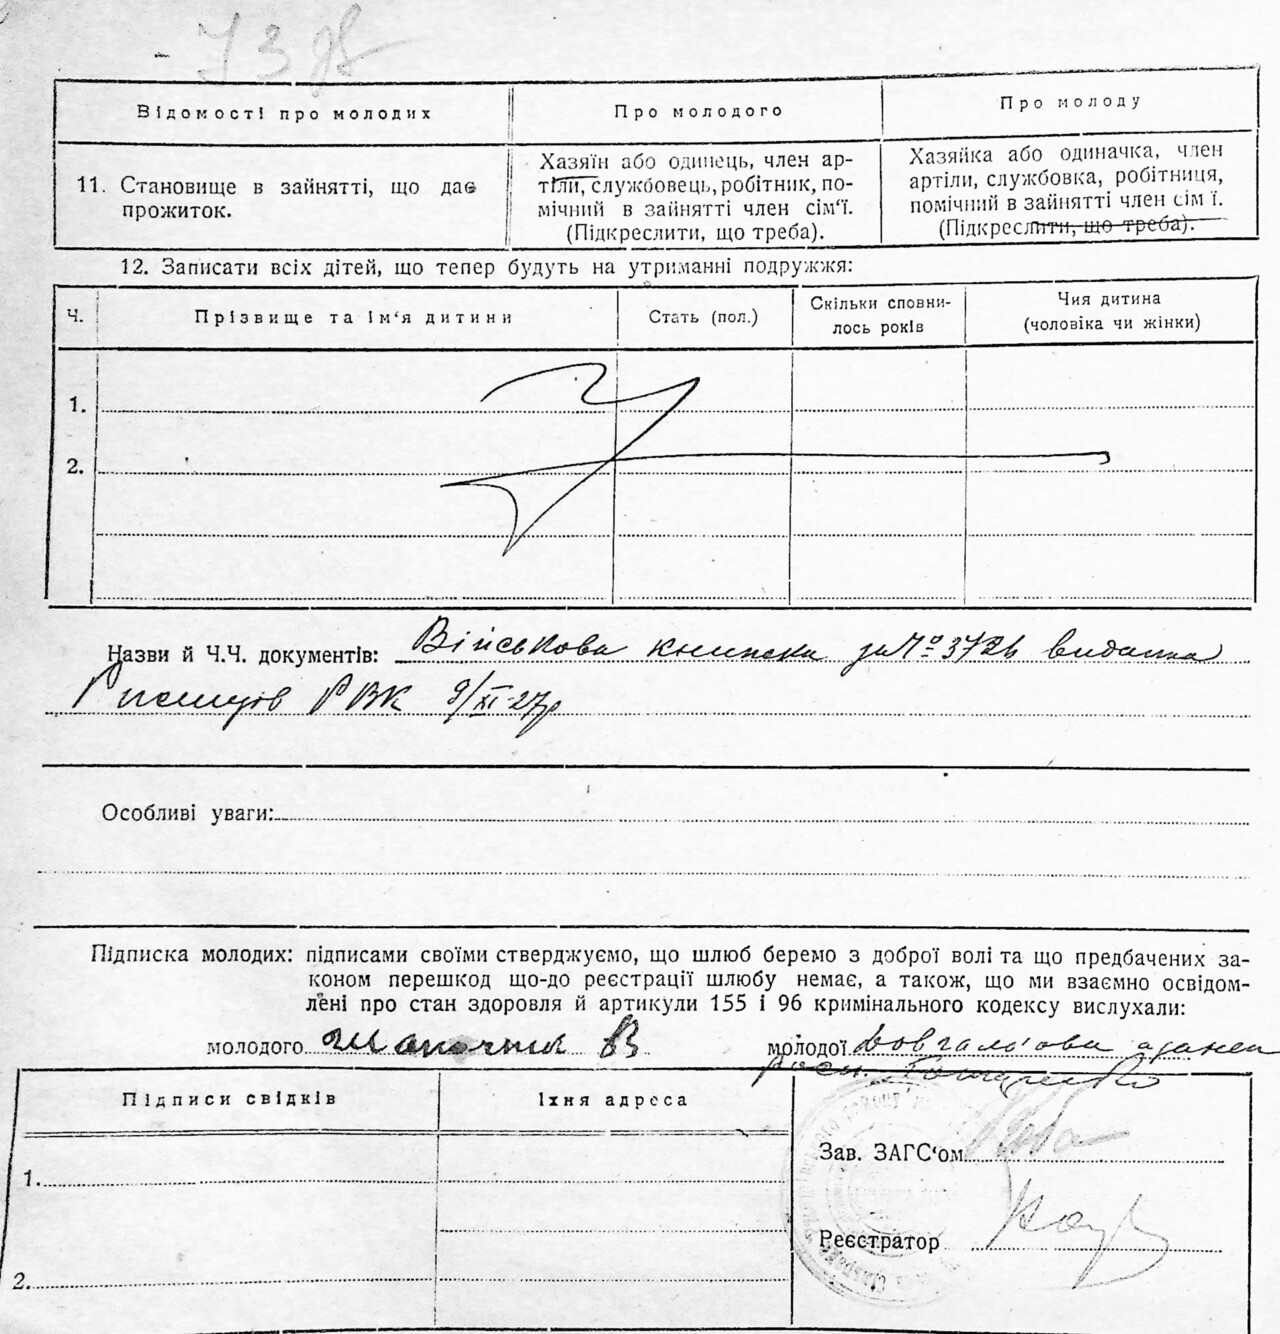 Відомості про молодих
Про молодого
Про молоду
11. Становище в зайнятті, що дає
прожиток.
Хазяїн або одинець, член ар-
тіли, службовець, робітник, по-
мічний в зайнятті член сім'ї.
(Підкреслити, що треба).
Хазяйка або одиначка, член
артіли, службовка, робітниця,
помічний в зайнятті член сім ї.
(Підкреслити, що треба).
12. Записати всіх дітей, що тепер будуть на утриманні подружжя:
Ч.
Прізвище та ім'я дитини
Стать (пол.)
Скільки сповни-
лось років
Чия дитина
(чоловіка чи жінки)
1.
2.
Назви й Ч.Ч. документів: Військова книжка за № 3726 видана
РВК 9/XI-27р
Особливі уваги:
Підписка молодих: підписами своїми стверджуємо, що шлюб беремо з доброї волі та що предбачених за-
коном перешкод що-до реєстрації шлюбу немає, а також, що ми взаємно освідом-
лені про стан здоровля й артикули 155 і 96 кримінального кодексу вислухали:
молодого
В
молодої
Підписи свідків
Їхня адреса
1.
2.
Зав. ЗАГС'ом
Реєстратор